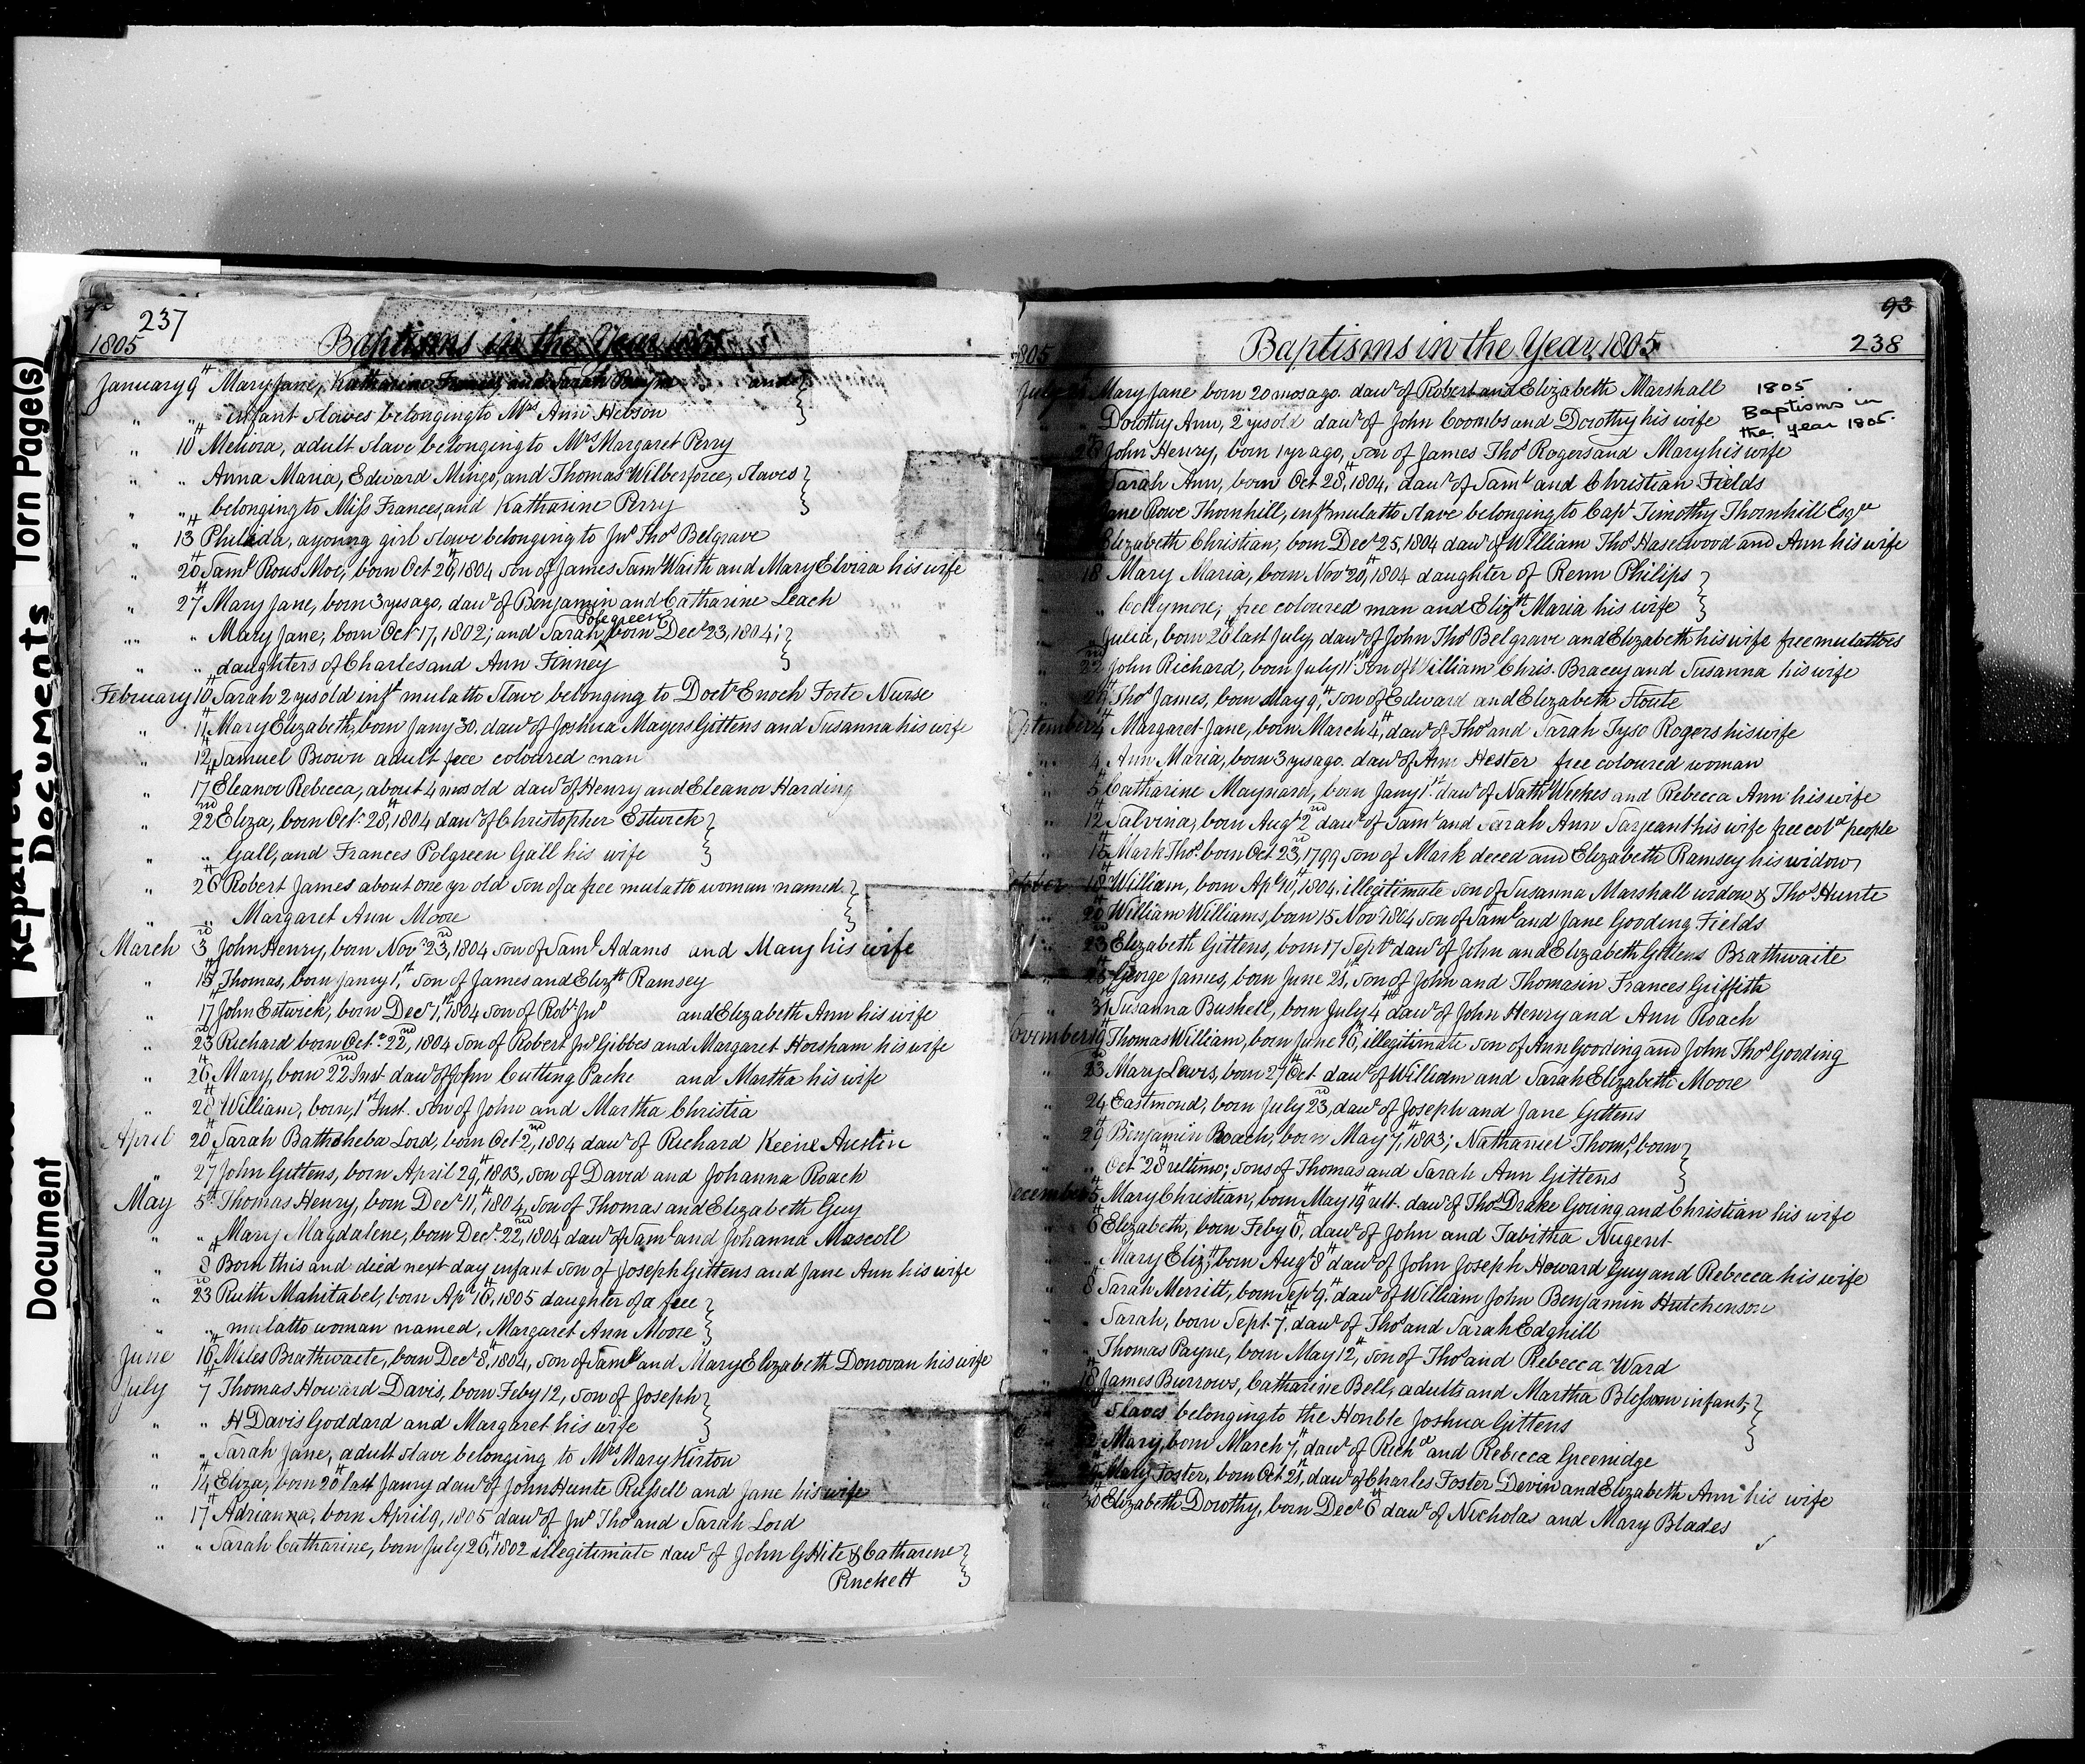 Repaired Documents Torn Pages)
Document
237
1805 Baptisms in the Year 1805
January 9th Mary Jane, Katharine Frances, and Sarah and
" " infant slaves belonging to Mrs Ann Hebson
" 10th Meliora, adult slave belonging to Mrs Margaret Perry
" " Anna Maria, Edward Mingo, and Thomas Wilberforce, slaves
" " belonging to Miss Frances, and Katharine Perry
" 13th Philida, a young girl slave belonging to Jno Thos Belgrave
" 20th Saml Rous Moe, born Oct 26th, 1804 son of James Saml Waith and Mary Elvira his wife
" 27th Mary Jane, born 3 yrs ago, daur of Benjamin and Catharine Leach
" " Mary Jane, born Octr 17, 1802; and Sarah Polgreen born Decr 23, 1804;
" " daughters of Charles and Ann Finney
February 10th Sarah 2 yrs old inft mulatto slave belonging to Doctr Enoch Forte Nurse
" 11th Mary Elizabeth, born Jany 30, daur of Joshua Mayers Gittens and Susanna his wife
" 12th Samuel Brown adult free coloured man
" 17th Eleanor Rebecca, about 4 mos old daur of Henry and Eleanor Harding
" 22nd Eliza, born Octr 28th, 1804 daur of Christopher Estwick
" " Gall, and Frances Polgreen Gall his wife
" 26th Robert James about one yr old son of a free mulatto woman named
" " Margaret Ann Moore
March 3rd John Henry, born Novr 23rd, 1804 son of Saml Adams and Mary his wife
" 15th Thomas, born Jany 1st, son of James and Elizth Ramsey
" 17th John Estwick, born Decr 1st, 1804 son of Robt Jno and Elizabeth Ann his wife
" 23rd Richard born Octr 22nd, 1804 son of Robert Jno Gibbes and Margaret Horsham his wife
" 26th Mary, born 22nd Inst daur of John Cutting Packe and Martha his wife
" 28th William, born 1st Inst. son of John and Martha Christia
April 20th Sarah Bathsheba Lord, born Oct 2nd, 1804 daur of Richard Keene Austin
" 27th John Gittens, born April 29th, 1803, son of David and Johanna Roach
May 5th Thomas Henry, born Decr 11th, 1804, son of Thomas and Elizabeth Guy
" " Mary Magdalene, born Decr 22nd, 1804 daur of Saml and Johanna Mascoll
" 8th Born this and died next day infant son of Joseph Gittens and Jane Ann his wife
" 23rd Ruth Mahitabel, born Apl 16th, 1805 daughter of a free
" " mulatto woman named, Margaret Ann Moore
June 16th Miles Brathwaite, born Decr 8th, 1804, son of Saml and Mary Elizabeth Donovan his wife
July 7th Thomas Howard Davis, born Feby 12, son of Joseph
" " H Davis Goddard and Margaret his wife
" " Sarah Jane, adult slave belonging to Mrs Mary Kirton
" 14th Eliza, born 20th last Janry daur of John Hunte Russell and Jane his wife
" 17th Adrianna, born April 9, 1805 daur of Jno Thos and Sarah Lord
" " Sarah Catharine, born July 26th, 1802 illegitimate daur of John G Hite & Catharine
Puckett
93
1805 Baptisms in the Year 1805 238
1805
Baptisms in
the year 1805.
July Mary Jane born 20 mos ago. daur of Robert and Elizabeth Marshall
Dorothy Ann, 2 yrs old daur of John Coombs and Dorothy his wife
28 John Henry, born 1 yr ago, son of James Thos Rogers and Mary his wife
Sarah Ann, born Oct 28th, 1804, daur of Saml and Christian Fields
Jane Rowe Thornhill, inft mulatto slave belonging to Capt Timothy Thornhill Esqre
Elizabeth Christian, born Decr 25, 1804 daur of William Thos Haselwood and Ann his wife
18 Mary Maria, born Novr 20th, 1804 daughter of Renn Philips
" Collymore, free coloured man and Elizth Maria his wife
" Julia, born 26th last July, daur of John Thos Belgrave and Elizabeth his wife free mulattoes
22nd John Richard, born July 11th son of William Chris. Bracey and Susanna his wife
29th Thos James, born May 9th, son of Edward and Elizabeth Stoute
September Margaret Jane, born March 4th, daur of Thos and Sarah Tyso Rogers his wife
" 4 Ann Maria, born 3 yrs ago. daur of Ann Hester free coloured woman
" 5th Catharine Maynard, born Jany 1st daur of Nathl Weekes and Rebecca Ann his wife
" 12th Salvina, born Augt 2nd daur of Saml and Sarah Ann Sarjeant his wife free cold people
" 15th Mark Thos born Oct 23rd, 1799 son of Mark deced and Elizabeth Ramsey his widow
October 18th William, born Apl 10th, 1804. illegitimate son of Susanna Marshall widow & Thos Hunte
" 20th William Williams, born 15 Novr 1804 son of Saml and Jane Gooding Fields
" 23rd Elizabeth Gittens, born 17 Septr daur of John and Elizabeth Gittens Brathwaite
" 28th George James, born June 21st, son of John and Thomasin Frances Griffith
" 31st Susanna Bushell, born July 4th daur of John Henry and Ann Roach
November 19th Thomas William, born June 16th, illegitimate son of Ann Gooding and John Thos Gooding
" 23rd Mary Lewis, born 27th Oct daur of William and Sarah Elizabeth Moore
" 24th Eastmond, born July 23rd, daur of Joseph and Jane Gittens
" 29th Benjamin Roach, born May 7th, 1803; Nathaniel Thoms, born
" " Oct 28th ultimo; sons of Thomas and Sarah Ann Gittens
December 5th Mary Christian, born May 19th ult. daur of Thos Drake Goring and Christian his wife
" 6th Elizabeth, born Feby 6th, daur of John and Tabitha Nugent
" " Mary Elizth, born Augt 8th daur of John Joseph Howard Guy and Rebecca his wife
" 8th Sarah Merritt, born Sept 9th. daur of William John Benjamin Hutchenson
" " Sarah, born Sept 7th, daur of Thos and Sarah Edghill
" " Thomas Payne, born May 12th, son of Thos and Rebecca Ward
" 18th James Burrows, Catharine Bell, adults and Martha Blossom infant,
" slaves belonging to the Honble Joshua Gittens
Mary, born March 7th, daur of Richd and Rebecca Greenidge
Mary Foster, born Oct 21st, daur of Charles Foster Devin and Elizabeth Ann his wife
" 30th Elizabeth Dorothy, born Decr 6th daur of Nicholas and Mary Blades